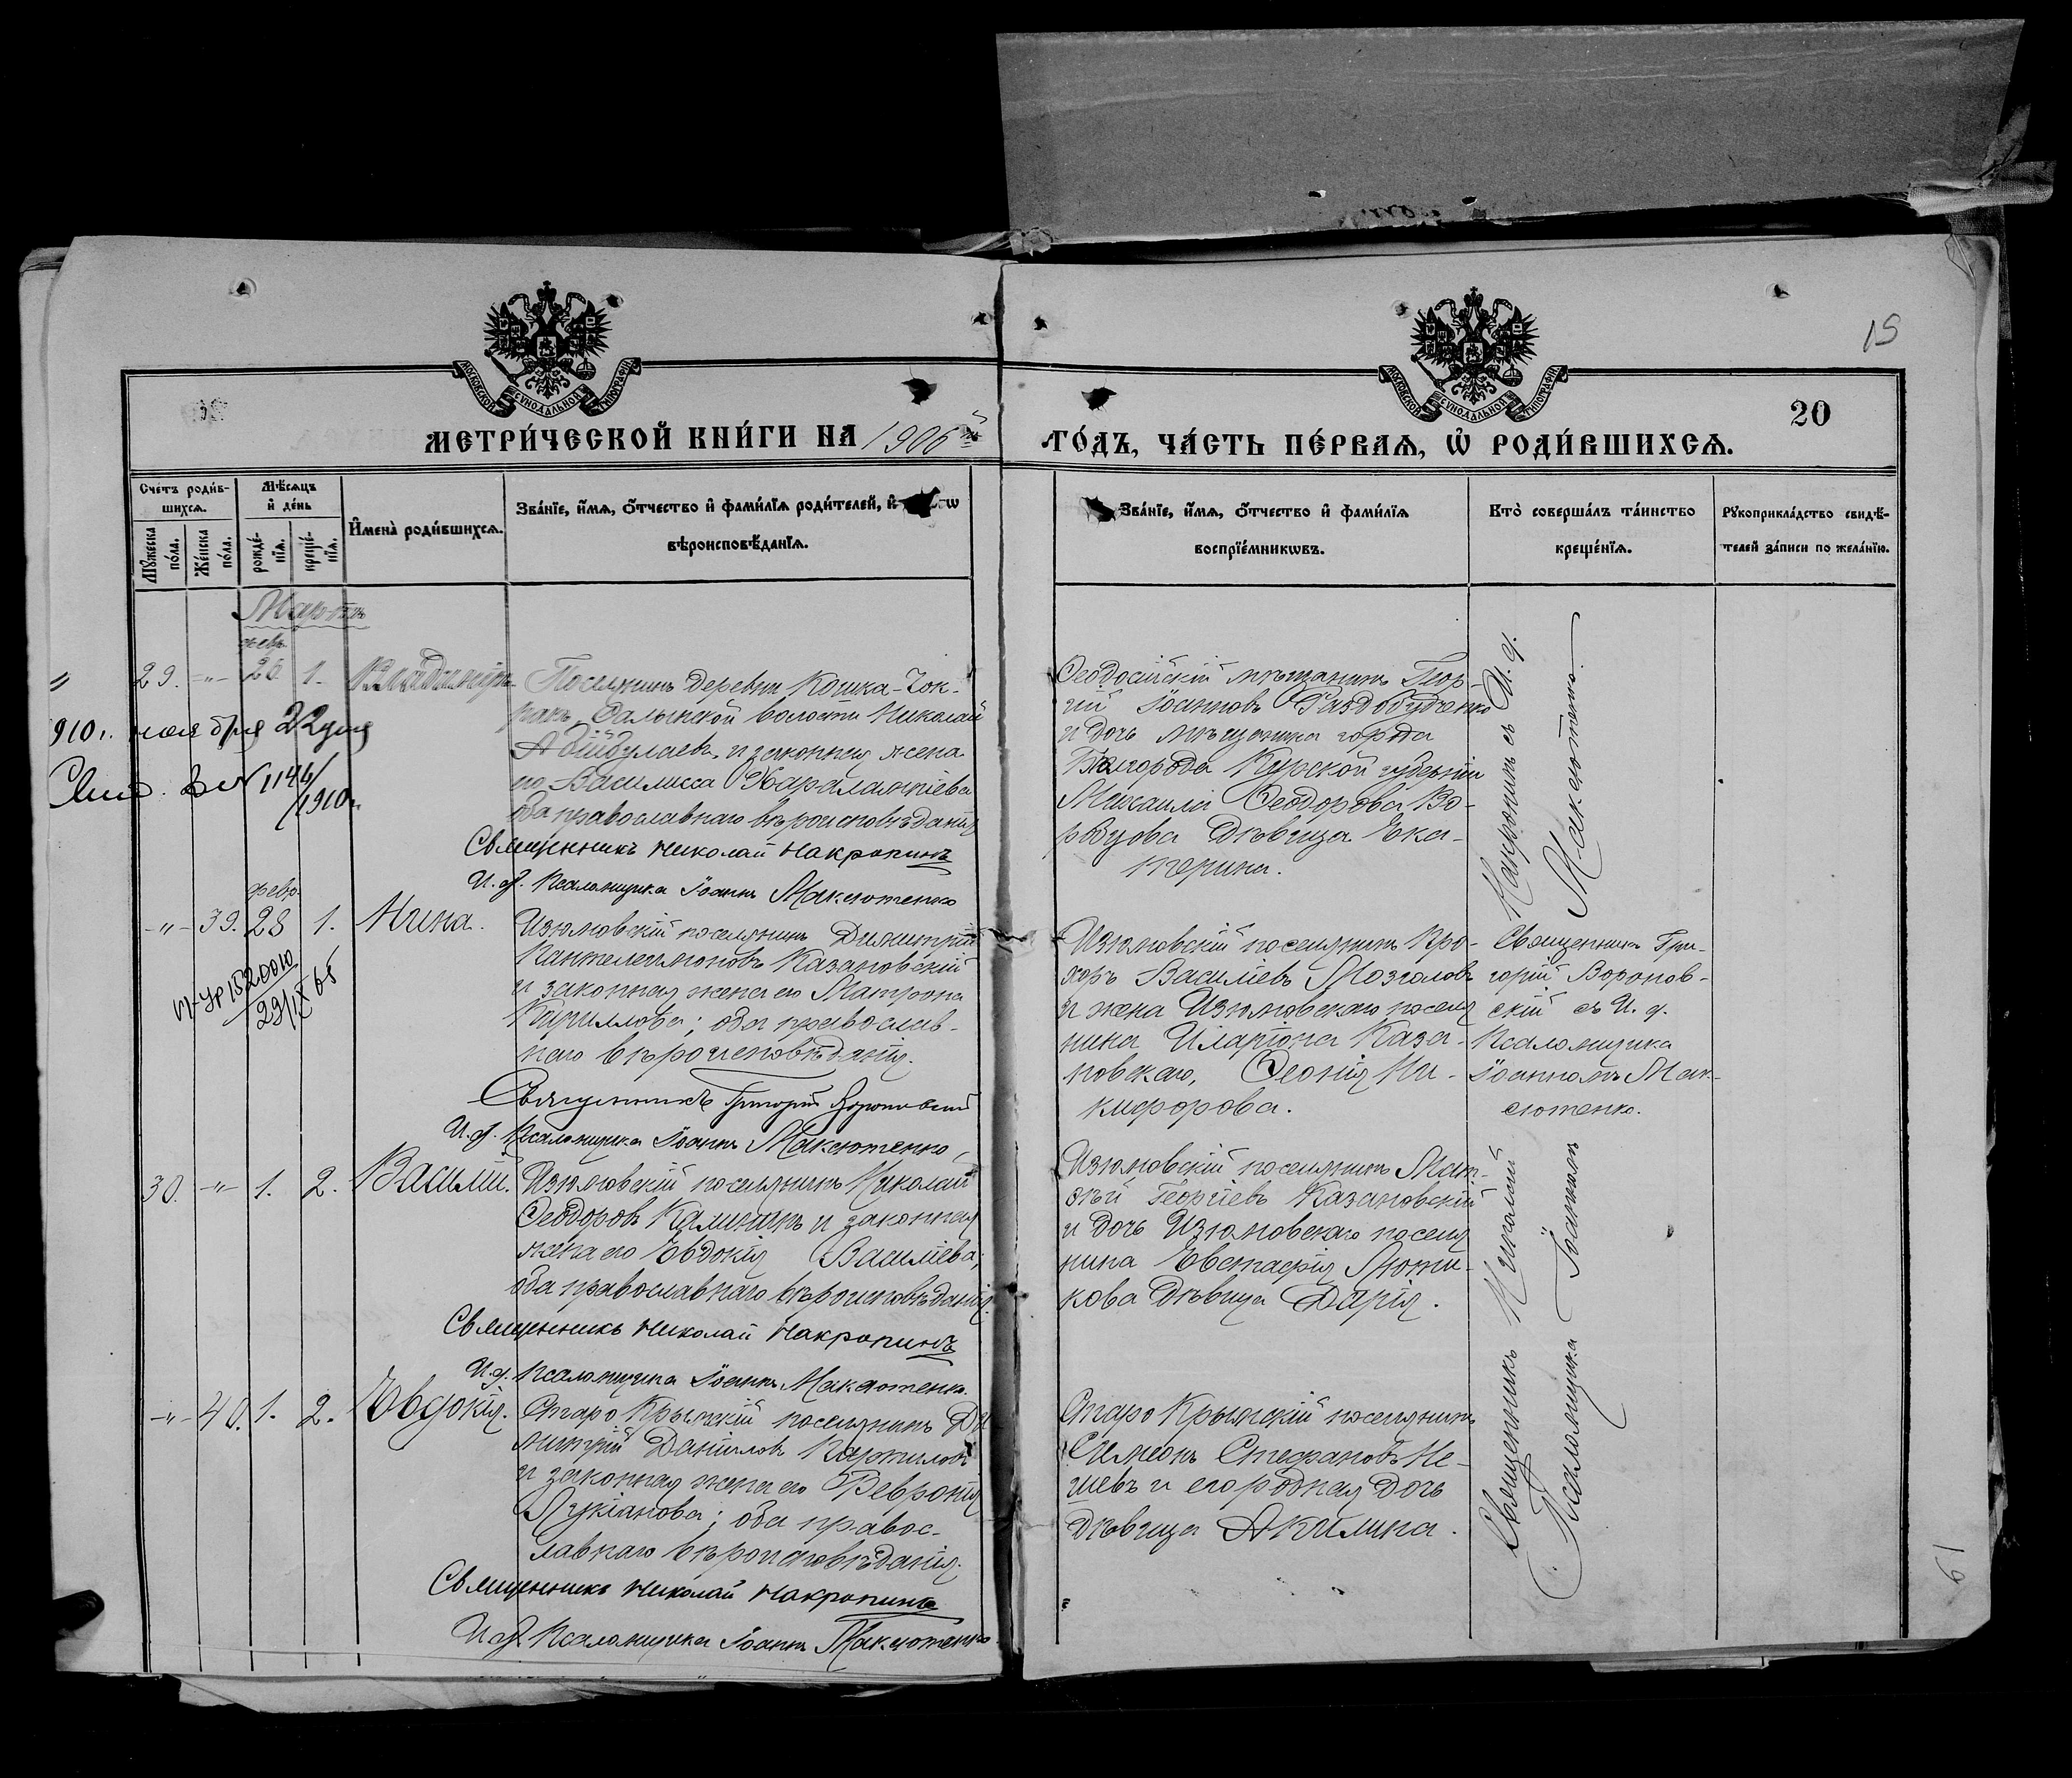 15
20
МОСКОВСКОЙ СУНОДАЛЬНОЙ ТИПОГРАФІИ
МОСКОВСКОЙ СУНОДАЛЬНОЙ ТИПОГРАФІИ
МЕТРИ́ЧЕСКОЙ КНИ́ГИ НА 1906 й
ГО́ДЪ, ЧА́СТЬ ПЕ́РВАѦ, Ѡ҆ РОДИ́ВШИХСѦ.
Сче́тъ роди́в-
шихсѧ.
Мѣ́сѧцъ
и҆ де́нь
Мꙋ́жеска
по́ла.
Же́нска
по́ла.
рожде́-
нїѧ.
креще́-
нїѧ.
И҆мена̀ роди́вшихсѧ.
Зва́нїе, и҆́мѧ, ѻ҆́тчество и҆ фами́лїѧ роди́телей, и҆
вѣроисповѣ́данїѧ.
Зва́нїе, и҆́мѧ, ѻ҆́тчество и҆ фами́лїѧ
воспрїе́мникѡвъ.
Кто̀ соверша́лъ та́инство
креще́нїѧ.
Рꙋкоприкла́дство свидѣ́-
телей за́писи по жела́нїю.
Мартъ
февр.
29. -"- 26. 1. Владиміръ
Поселянинъ деревни Кошка-Чок-
ракъ, Салынской волости Николай
Абдулаевъ и законная жена
его Василисса Харалампіева
оба православнаго вѣроисповѣданія
Священникъ Николай Накропинъ
И. д. Псаломщика Іоаннъ Максютенко
910 г. ноября 22 дня
1146/
1910 г.
Ѳеодосійскій мѣщанинъ Геор-
гій Іоанновъ Раздобудченко
и дочь мѣщанина города
Бѣлгорода Курской губерніи
Михаила Ѳеодорова Во-
робцова дѣвица Ека-
терина.
Накропинъ съ И. д.
Максютенко.
февр.
-"- 39. 28 1. Нина.
1820010
29/IX 65
Изюмовскій поселянинъ Димитрій
Пантелеимоновъ Казановскій
и законная жена его Матрона
Кириллова; оба православ-
наго вѣроисповѣданія.
Священникъ Григорій Вороновскій
И. д. Псаломщика Іоаннъ Максютенко
Изюмовскій поселянинъ Про-
хоръ Василіевъ Мозголовъ
и жена Изюмовскаго поселя
нина Иларіона Каза-
новскаго, Ѳеонія Ни-
кифорова.
Священникъ Гри-
горій Воронов-
скій съ И. д.
Псаломщика
Іоанномъ Мак-
сютенко.
30. -"- 1. 2. Василій.
Изюмовскій поселянинъ Николай
Ѳеодоровъ Калининъ и законная
жена его Евдокія Василіева;
оба православнаго вѣроисповѣданія.
Священникъ Николай Накропинъ
И. д. Псаломщика Іоаннъ Максютенко.
Изюмовскій поселянинъ Мат-
ѳѣй Георгіевъ Казановскій
и дочь Изюмовскаго поселя
нина Евстафія Люти-
кова дѣвица Дарія.
-"- 40. 1. 2. Евдокія.
Старо Крымскій поселянинъ Ди
митрій Даніиловъ Карпиловъ
и законная жена его Феврония
Лукіанова; оба правос-
лавнаго вѣроисповѣданія.
Священникъ Николай Накропинъ
И. д. Псаломщика Іоаннъ Максютенко
Старо Крымскій поселянинъ
Симеонъ Стефановъ Не-
шевъ и его родная дочь
дѣвица Акилина.
Священникъ Николай
Псаломщика Іоанномъ
19